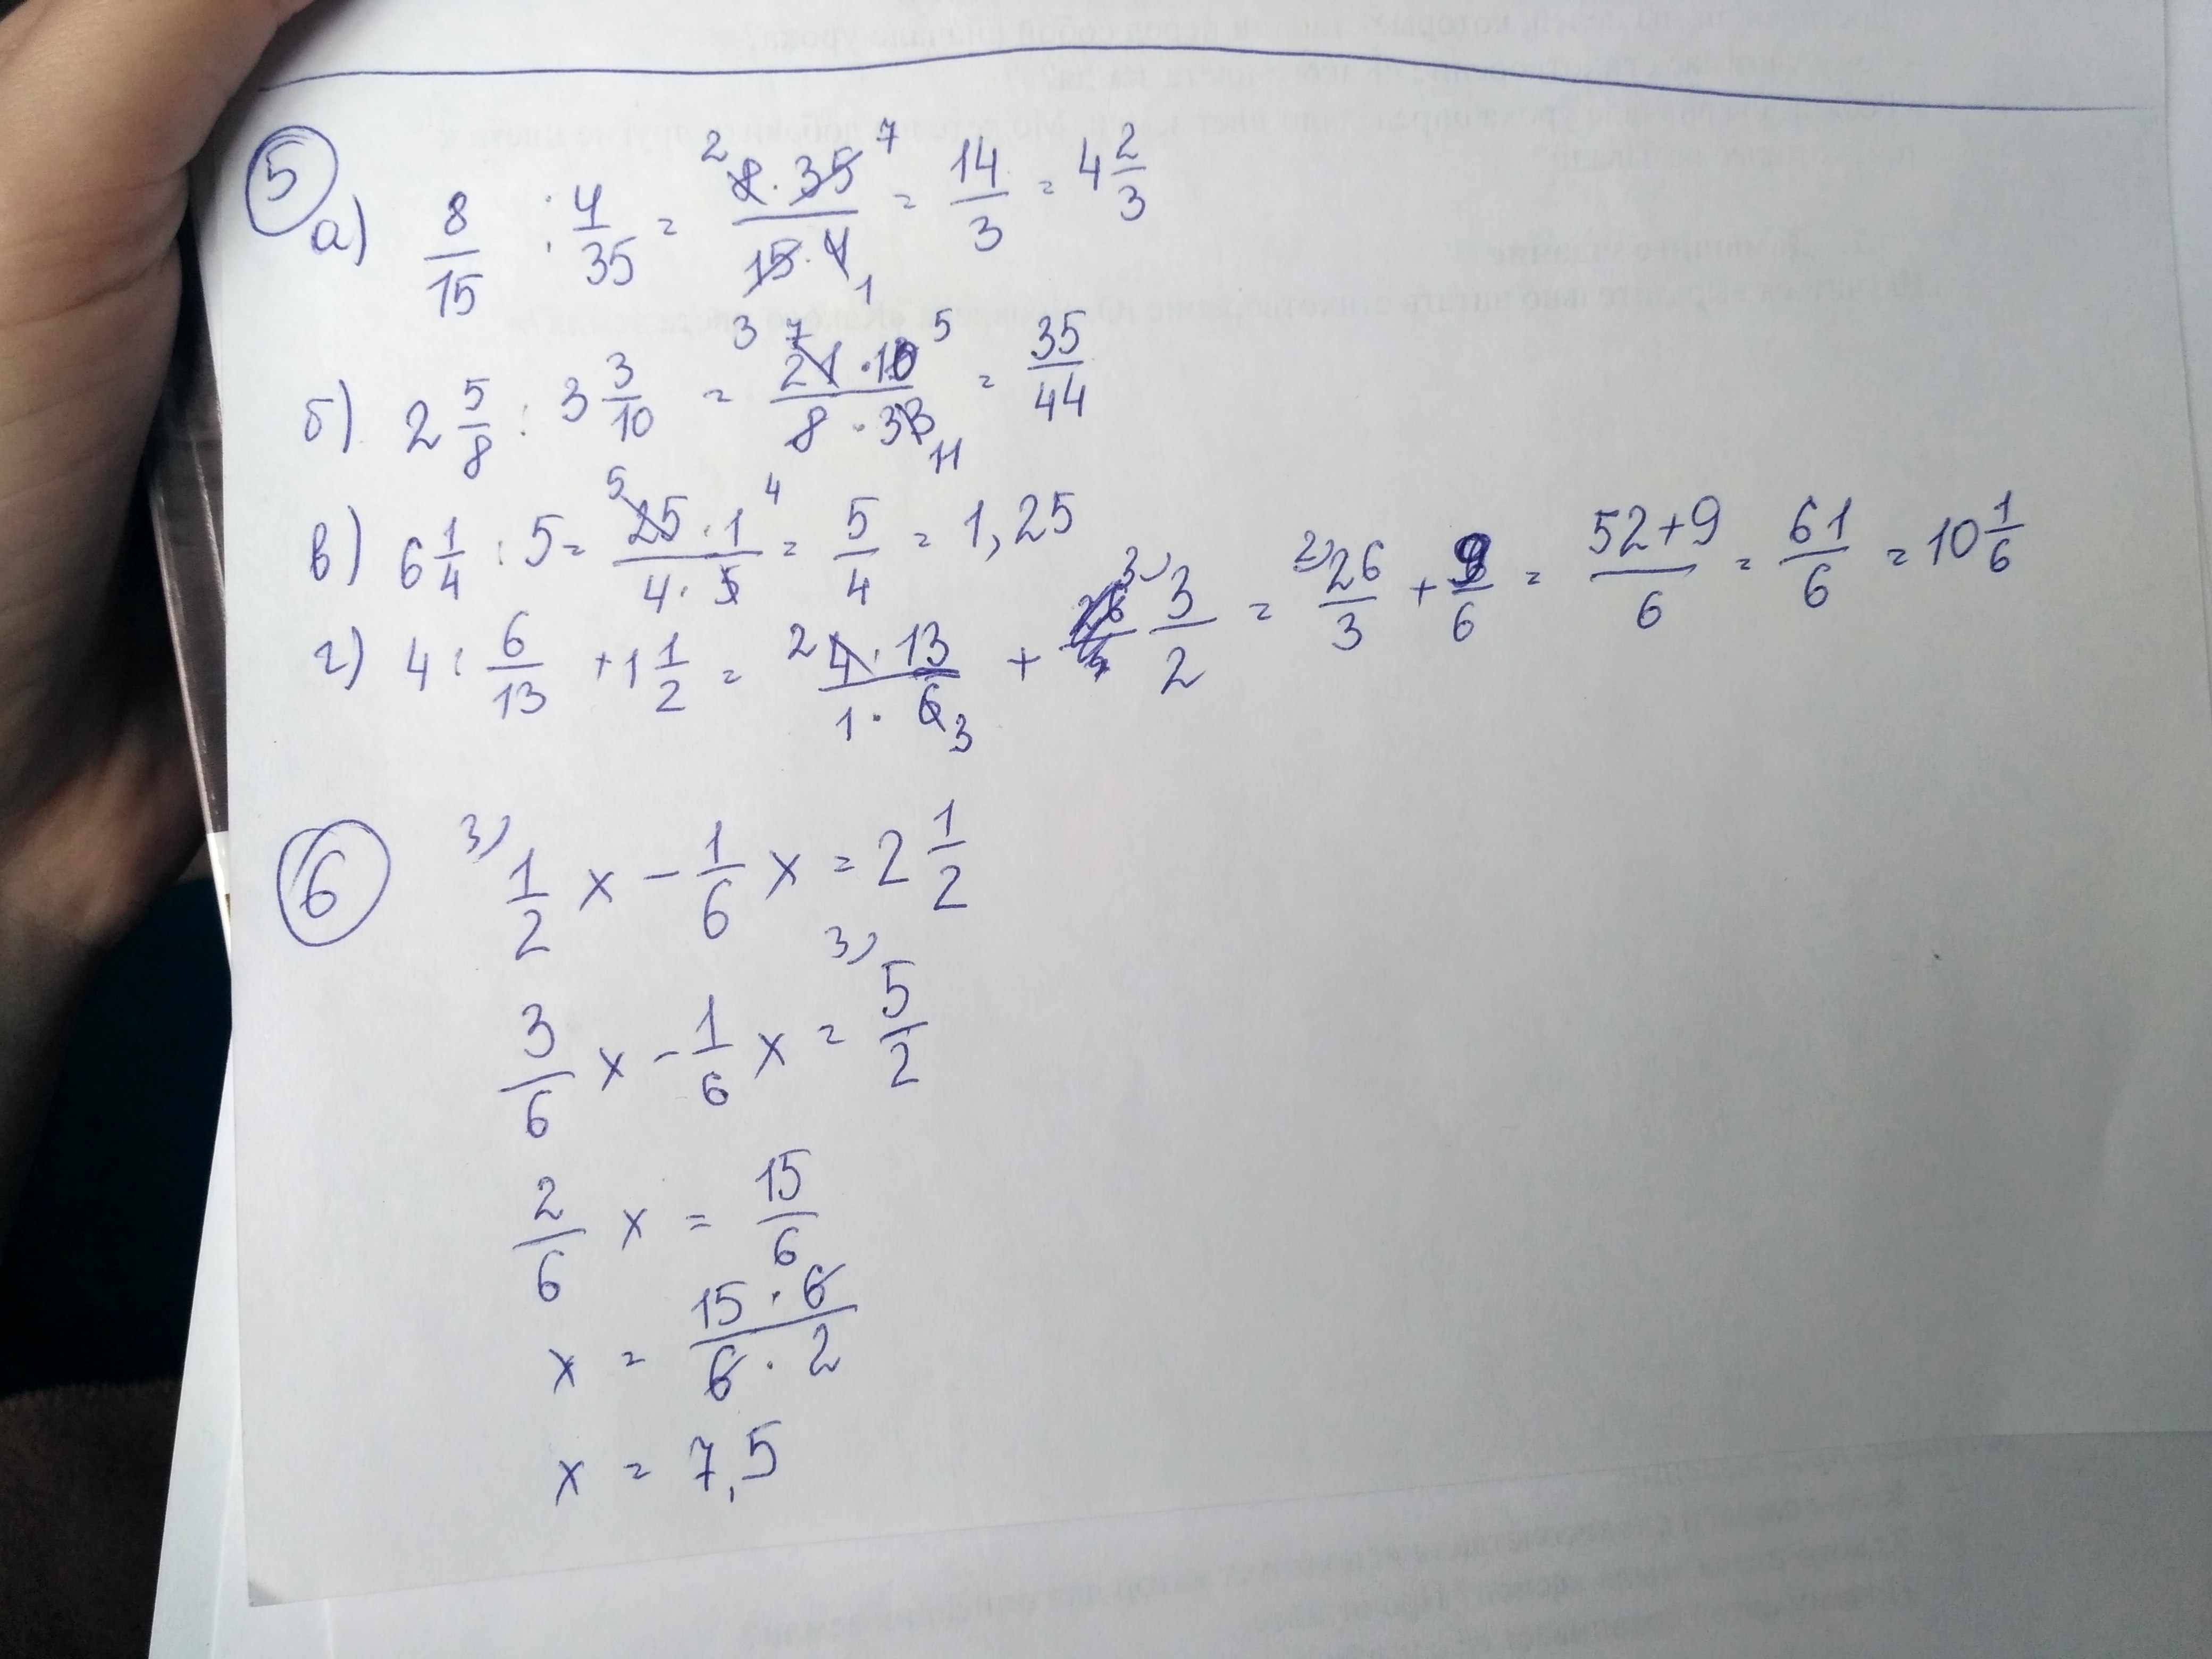 5
а) 8/15 : 4/35 = 8·35/15·4 = 14/3 = 4 2/3
б) 2 5/8 : 3 3/10 = 21·10/8·33 = 35/44
в) 6 1/4 : 5 = 25·1/4·5 = 5/4 = 1,25
г) 4 : 6/13 + 1 1/2 = 4·13/1·6 + 3/2 = 26/3 + 9/6 = 52+9/6 = 61/6 = 10 1/6
6
1/2 x - 1/6 x = 2 1/2
3/6 x - 1/6 x = 5/2
2/6 x = 15/6
x = 15·6/6·2
x = 7,5